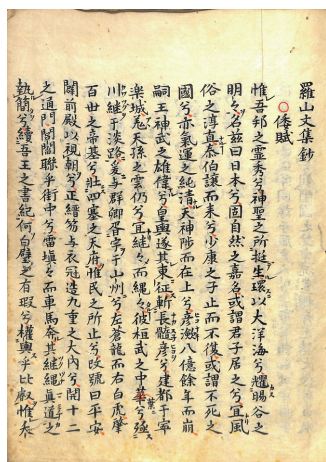 羅山文集鈔
倭賦
惟吾邦之靈秀兮神聖之所挺生環以大洋海兮耀暘谷之
明々名茲曰日本兮固自然之嘉名或謂君子居之兮宜風
俗之淳直泰伯讓而来兮少康之子止而不復或謂不死之
國兮亦氣運之純清天神陟而在上兮彦瀲八億餘年而崩
嗣王神武之雄偉兮皇輿遂其東征斬長髓彦兮建都于寧
楽城爲天孫之雲仍兮宜継々而縄々彼桓武之中葉兮
川継乎淡路爰与群卿胥宇于山州兮左蒼龍而右白虎肇
百世之帝基兮壮四塞之天府惟民之所止兮改號曰平安
闢前殿以視朝兮正縉笏与衣冠造九重之大内兮開十二
之通門閭閻聯乎街中兮雷塡々而車馬奔其継縄眞道之
執簡兮續吾王之書紀何白璧之有瑕兮權輿乎比叡惟表